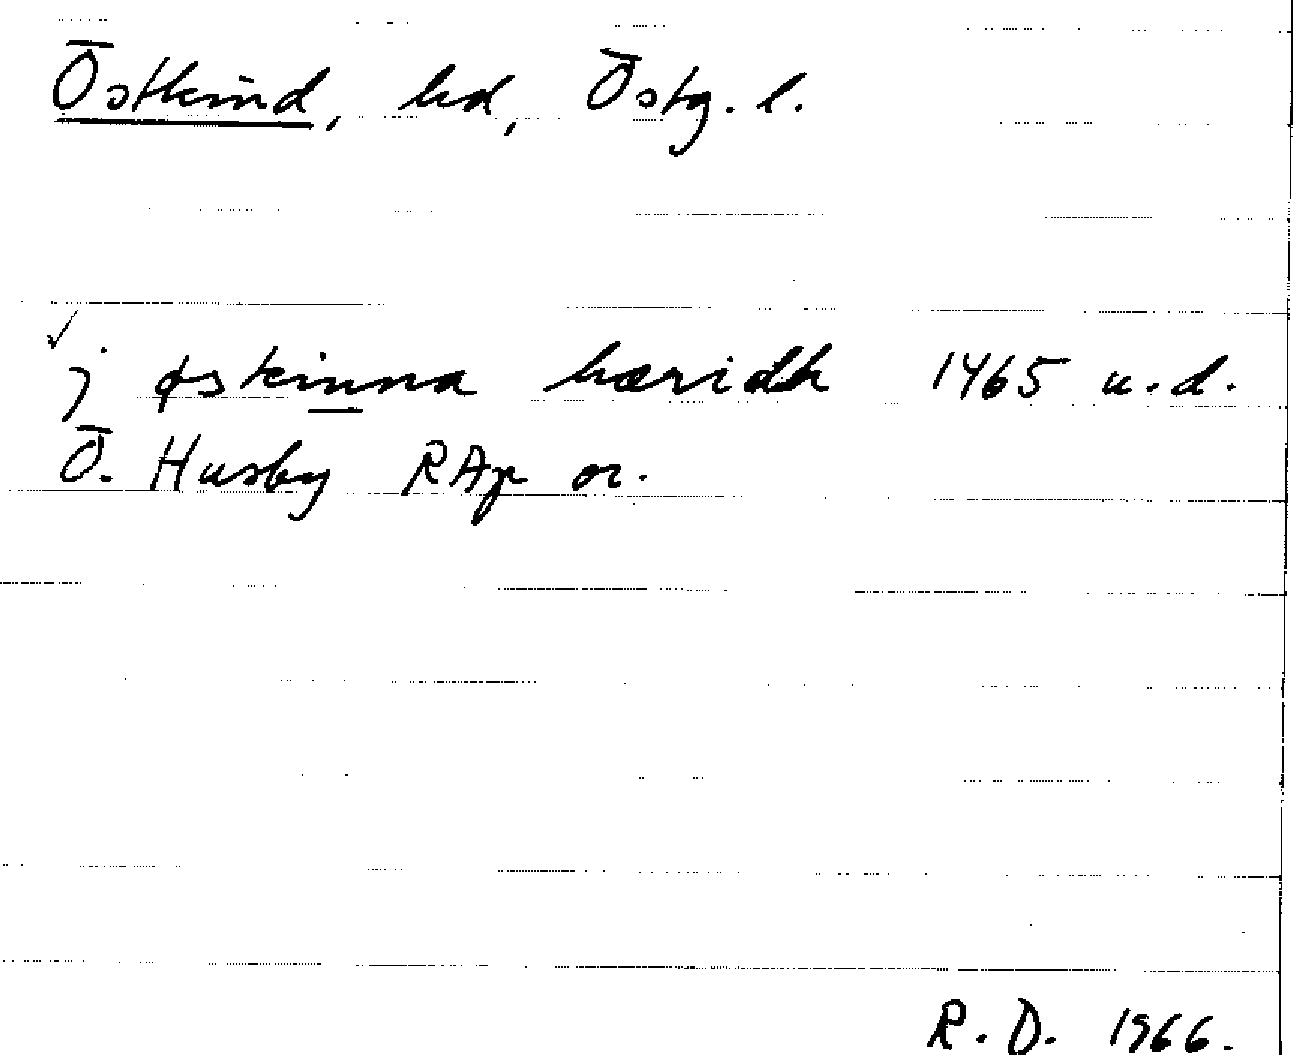 Östkind, hd, Östg. l.
j øskinna hæridh 1465 u.d.
Ö. Husby RAp or.
R. D. 1966.